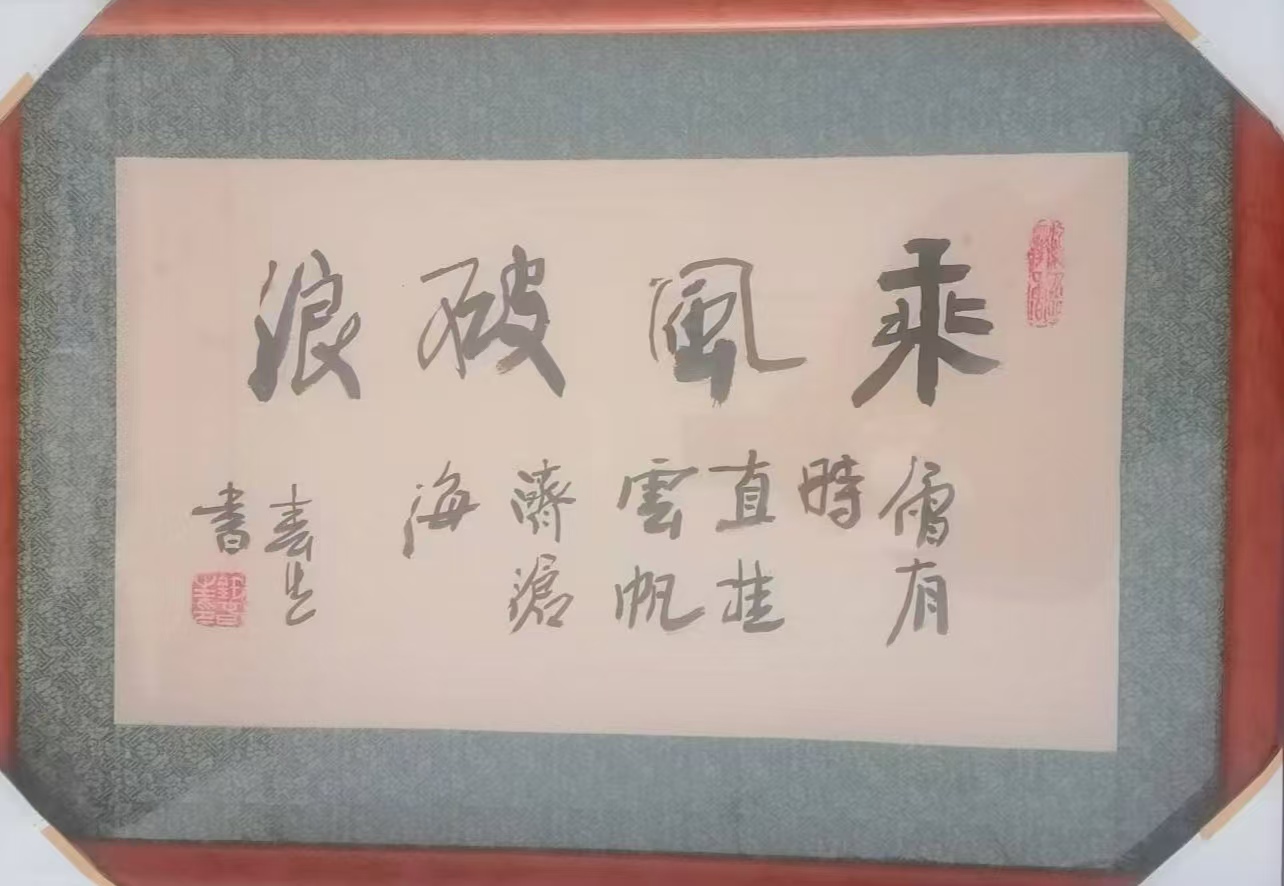 乘風破浪
有
時
直挂
雲帆
濟滄
海
書